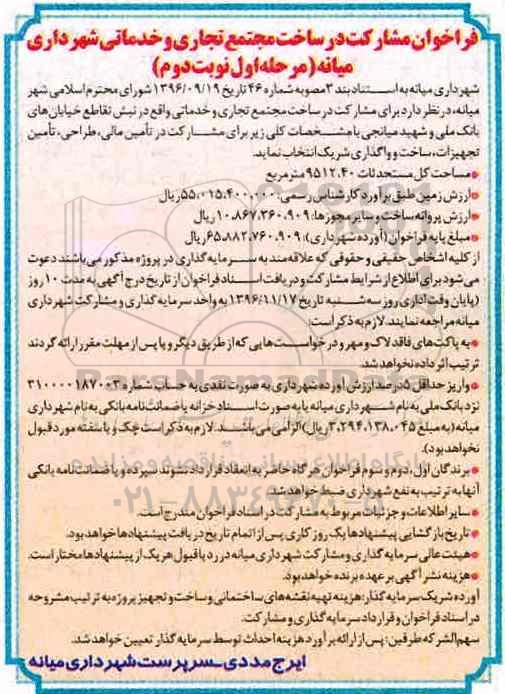 فراخوان مشارکت در ساخت مجتمع تجاری و خدماتی شهرداری
میانه (مرحله اول نوبت دوم)
شهرداری میانه به استناد بند ۳ مصوبه شماره ۴۶ تاریخ ۱۳۹۶/۰۹/۱۹ شورای محترم اسلامی شهر
میانه، در نظر دارد برای مشارکت در ساخت مجتمع تجاری و خدماتی واقع در نبش تقاطع خیابان‌های
بانک ملی و شهید میانجی با مشخصات کلی زیر برای مشارکت در تأمین مالی، طراحی، تأمین
تجهیزات، ساخت و واگذاری شریک انتخاب نماید.
•مساحت کل مستحدثات ۹۵۱۲.۴۰ مترمربع
•ارزش زمین طبق برآورد کارشناس رسمی: ۵۵،۰۱۵،۴۰۰،۰۰۰ ریال
•ارزش پروانه ساخت و سایر مجوزها: ۱۰،۸۶۷،۳۶۰،۹۰۹ ریال
•مبلغ پایه فراخوان (آورده شهرداری): ۶۵،۸۸۲،۷۶۰،۹۰۹ ریال
از کلیه اشخاص حقیقی و حقوقی که علاقه‌مند به سرمایه گذاری در پروژه مذکور می‌باشند دعوت
می‌شود برای اطلاع از شرایط مشارکت و دریافت اسناد فراخوان از تاریخ درج آگهی به مدت ۱۰ روز
(پایان وقت اداری روز سه شنبه تاریخ ۱۳۹۶/۱۱/۱۷ به واحد سرمایه گذاری و مشارکت شهرداری
میانه مراجعه نمایند. لازم به ذکر است:
•به پاکت‌های فاقد لاک و مهر و درخواست‌هایی که از طریق دیگر و یا پس از مهلت مقرر ارائه گردند
ترتیب اثر داده نخواهد شد.
•واریز حداقل ۵ درصد ارزش آورده شهرداری به صورت نقدی به حساب شماره ۳۱۰۰۰۰۱۸۷۰۰۳
نزد بانک ملی به نام شهرداری میانه یا به صورت اسناد خزانه یا ضمانت‌نامه بانکی به نام شهرداری
میانه (به مبلغ ۳،۲۹۴،۱۳۸،۰۴۵ ریال) الزامی می‌باشد. لازم به ذکر است چک و یا سفته مورد قبول
نخواهد بود).
•برندگان اول، دوم و سوم فراخوان هرگاه حاضر به انعقاد قرارداد نشوند سپرده و یا ضمانت‌نامه بانکی
آنها به ترتیب به نفع شهرداری ضبط خواهد شد.
•سایر اطلاعات و جزئیات مربوط به مشارکت در اسناد فراخوان مندرج است.
•تاریخ بازگشایی پیشنهادها یک روز کاری پس از اتمام تاریخ دریافت پیشنهادها خواهد بود.
•هیئت عالی سرمایه گذاری و مشارکت شهرداری میانه در رد یا قبول هر یک از پیشنهادها مختار است.
•هزینه نشر آگهی بر عهده برنده خواهد بود.
آورده شریک سرمایه گذار: هزینه تهیه نقشه‌های ساختمانی و ساخت و تجهیز پروژه به ترتیب مشروحه
در اسناد فراخوان و قرارداد سرمایه گذاری و مشارکت.
سهم الشرکه طرفین: پس از ارائه برآورد هزینه احداث توسط سرمایه گذار تعیین خواهد شد.
ایرج مددی ـ سرپرست شهرداری میانه